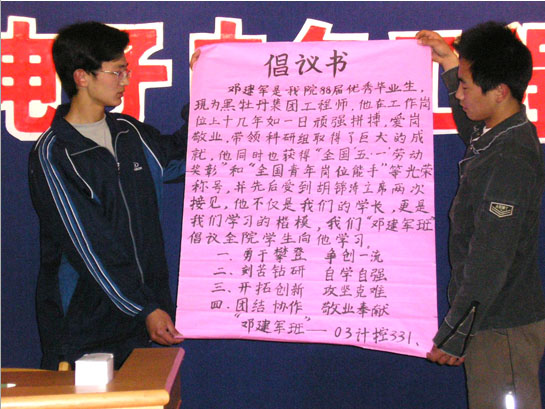 电子电气工程
倡议书
邓建军是我院88届优秀毕业生,
现为黑牡丹集团工程师,他在工作岗
位上十几年如一日顽强拼搏,爱岗
敬业,带领科研组取得了巨大的成
就,他同时也获得“全国‘五一’劳动
奖彰”和“全国青年岗位能手”等光荣
称号,并先后受到胡锦涛主席两次
接见,他不仅是我们的学长,更是
我们学习的楷模,我们“邓建军班”
倡议全院学生向他学习。
一、勇于攀登 争创一流
二、刻苦钻研 自学自强
三、开拓创新 攻坚克难
四、团结协作 敬业奉献
“邓建军班”——03计控331、